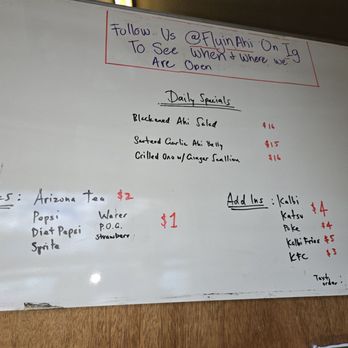 Follow Us @FlyinAhi On Ig
To See When & Where We
Are Open
Daily Specials
Blackened Ahi Salad $16
Sauteed Garlic Ahi Belly $15
Grilled Ono w/ Ginger Scallion $16
es: Arizona Tea $2
Pepsi Water $1
Diet Pepsi P.O.G.
Sprite Strawberry
Add Ins: Kalbi $4
Katsu
Poke $4
Kalbi Fries $5
KFC $3
Text
order: